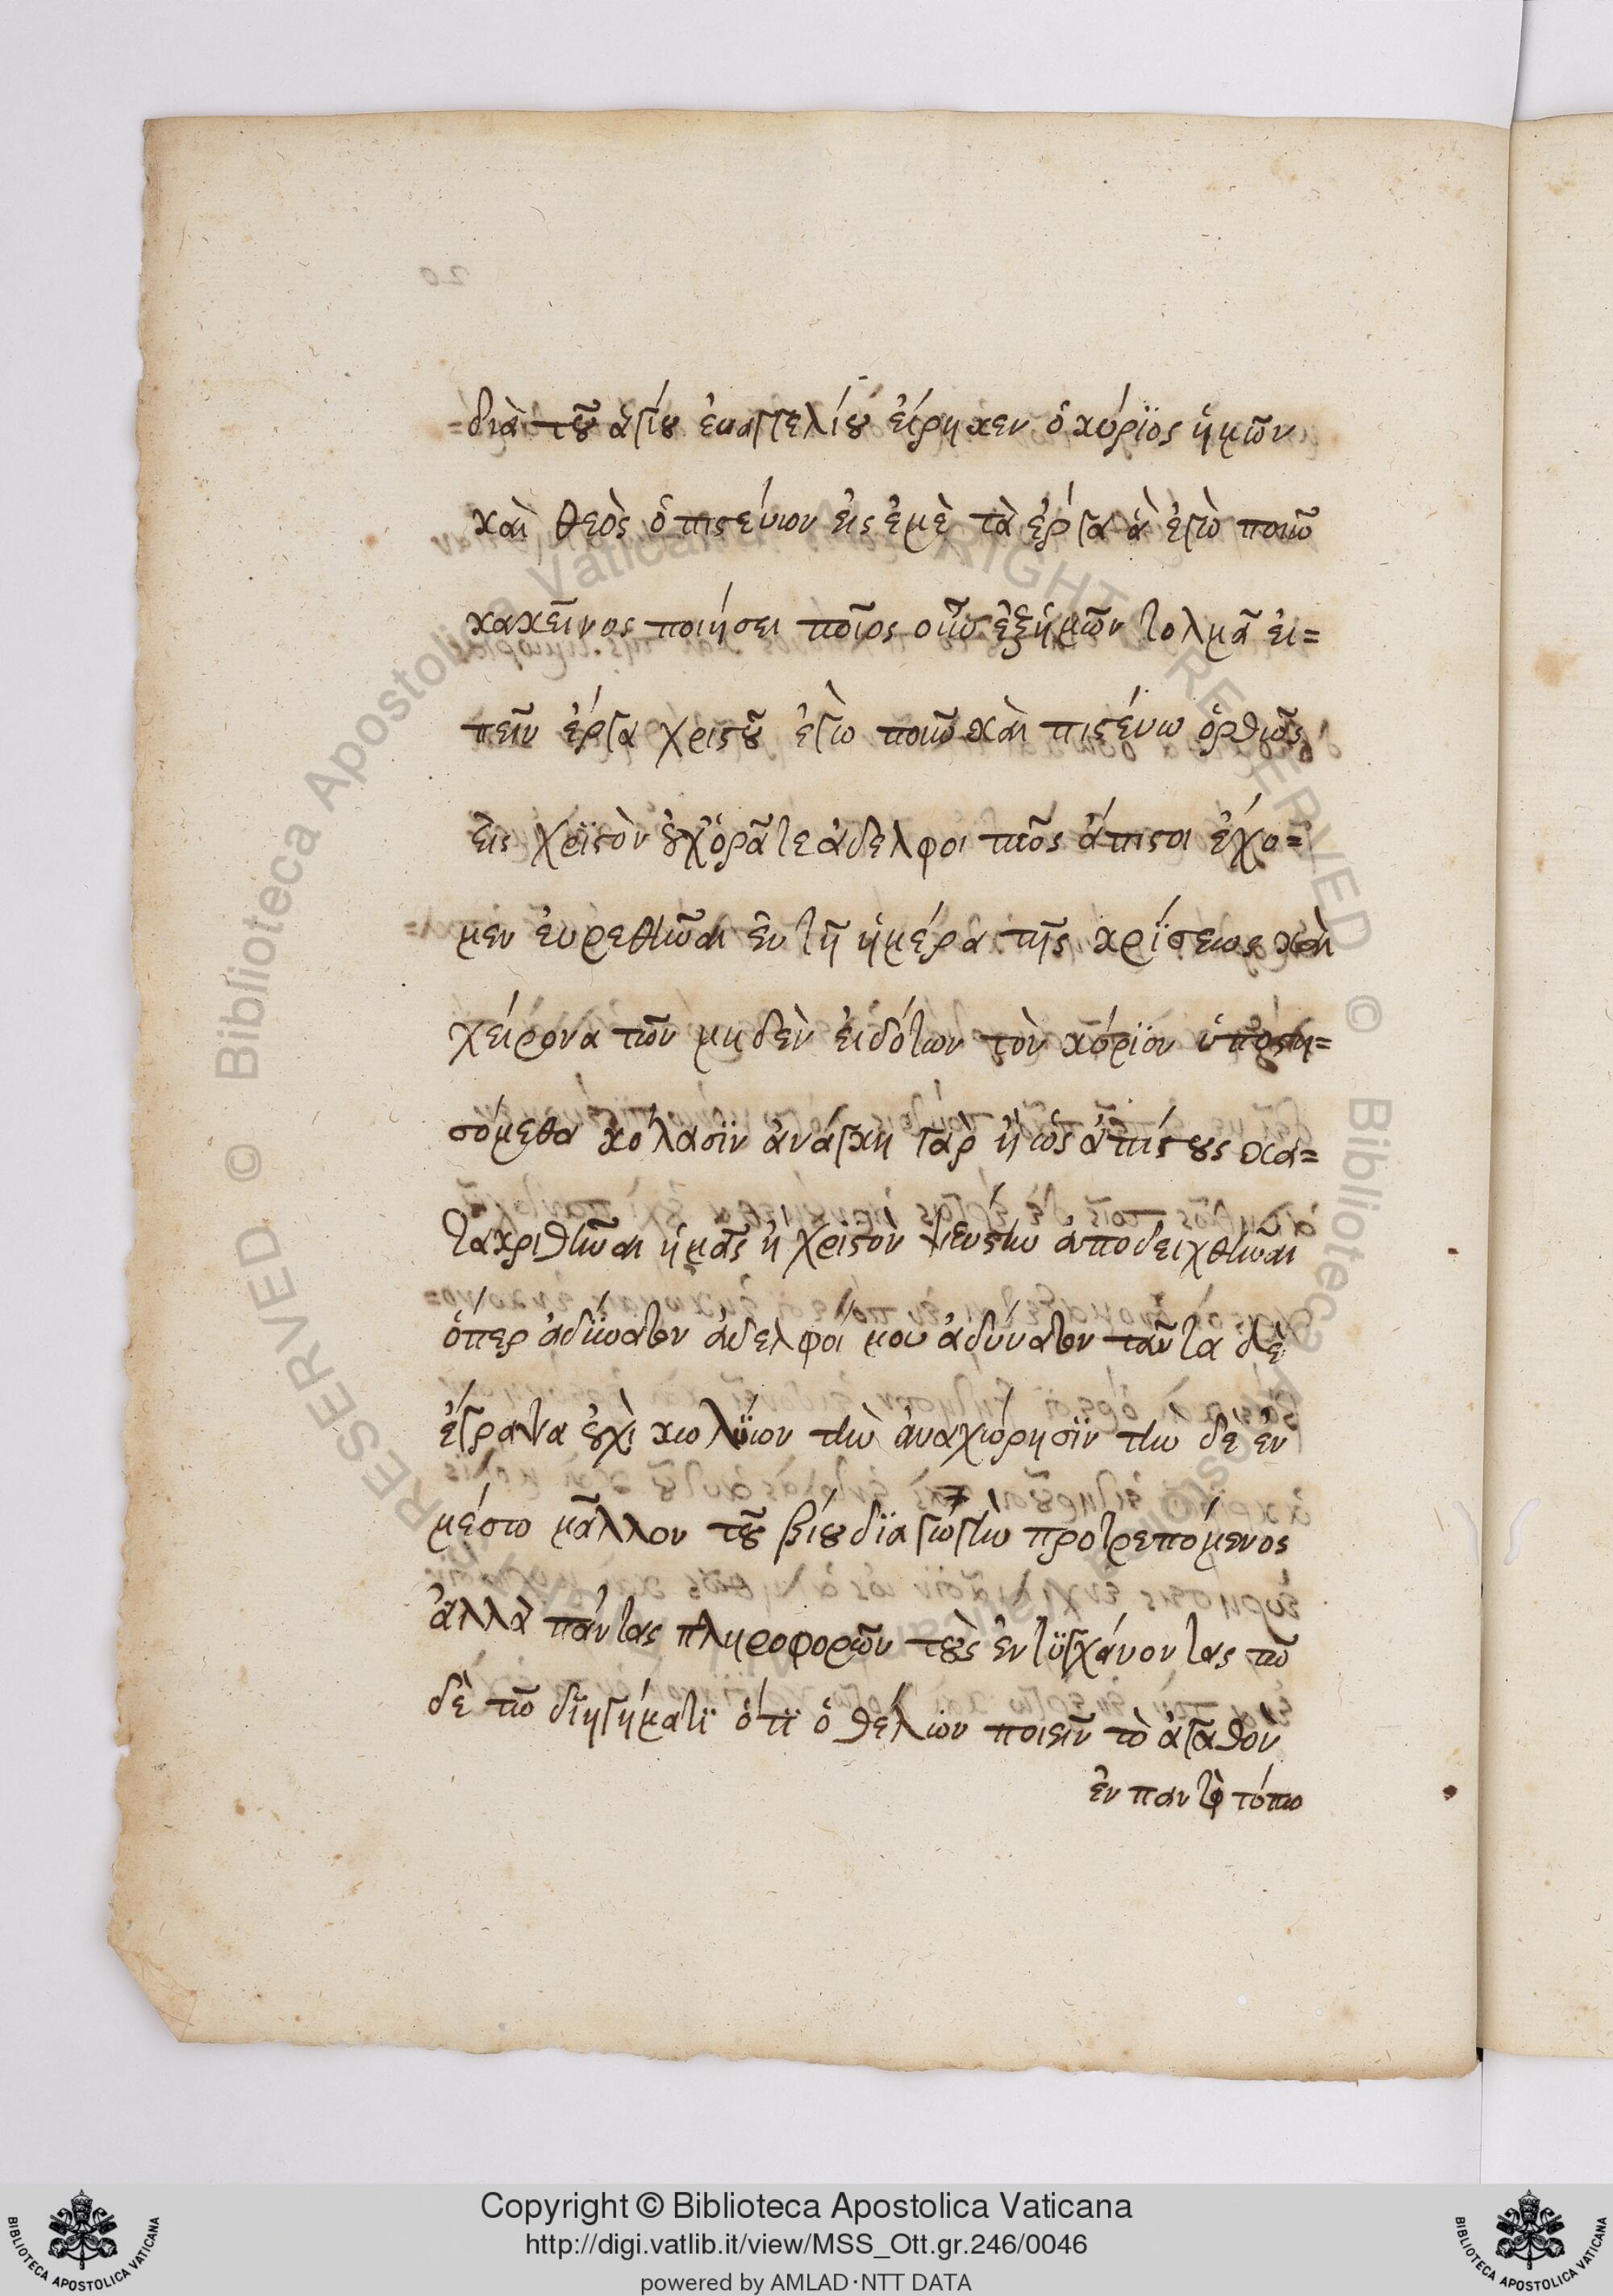 διὰ τοῦ ἁγίου ἐυαγγελίου ἐίρηκεν ὁ κύρϊος ἡμῶν
καὶ θεὸς ὁ πιστέυων ἐις ἐμὲ τὰ ἔργα ἁ ἐγὼ ποιῶ
κακεῖνος ποιήσει ποῖος οὖν ἐξ ἡμῶν τολμᾶ ἐι=
πεῖν ἔργα χριστοῦ ἐγὼ ποιῶ καὶ πιστέυω ὀρθῶς
ἐις χρϊστὸν οὐχ ὁρᾶτε ἀδελφοι πῶς ἄπιστοι ἔχο=
μεν ἑυρεθῆναι ἐν τῆ ἡμέρα τῆς κρίσεως καὶ
χείρονα τῶν μηδὲν ἐιδότων τὸν κύρϊον ὑποστη=
σόμεθα κόλασϊν ἀνάγκη γὰρ ἢ ὡς ἀπίστους κα=
τακριθῆναι ἡμᾶς ἢ χριστὸν ψευστην ἀποδειχθῆναι
ὅπερ ἀδύνατον ἀδελφοί μου ἀδύνατον ταῦτα δὲ
ἔγραψα οὐχὶ κωλύων τὴν ἀναχώρησϊν τὴν δὲ ἐν
μέσω μᾶλλον τοῦ βίου δϊαγώγην προτρεπόμενος
ἀλλὰ πάντας πληροφορῶν τοὺς ἐντϋγχάνοντας τῶ
δὲ τῶ δϊηγήματϊ ὅτϊ ὁ θέλων ποιεῖν τὸ ἀγαθὸν
ἐν παντὶ τόπω
Copyright © Biblioteca Apostolica Vaticana
http://digi.vatlib.it/view/MSS_Ott.gr.246/0046
powered by AMLAD·NTT DATA
BIBLIOTECA APOSTOLICA VATICANA
BIBLIOTECA APOSTOLICA VATICANA